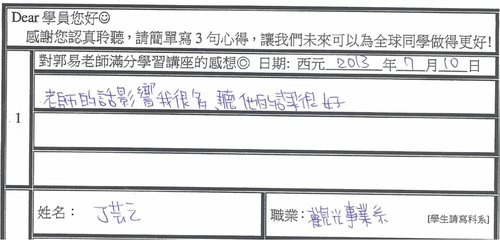 Dear 學員您好☺
感謝您認真聆聽,請簡單寫3句心得,讓我們未來可以為全球同學做得更好!
對郭易老師滿分學習講座的感想◎ 日期: 西元 2013 年 7 月 10 日
老師的話影響我很多、聽他的課很好
1
姓名: 丁芸
職業: 觀光事業系 [學生請寫科系]